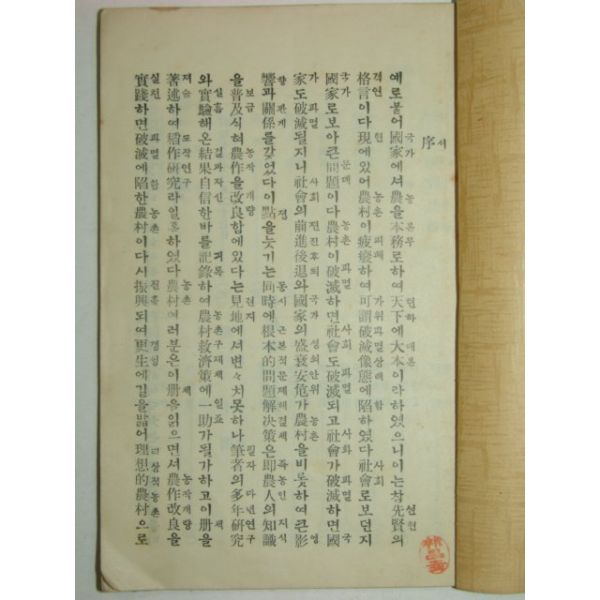 序
예로붓어國家에셔農을本務로하여天下에大本이라하였으니이는참先賢의
格言이다現에있어農村이疲廢하여可謂破滅像態에陷하였다社會로보던지
國家로보아큰問題이다農村이破滅하면社會도破滅되고社會가破滅하면國
家도破滅될지니社會의前進後退와國家의盛衰安危가農村을비롯하여큰影
響과關係를갖었다이點을늣기는同時에根本的問題解決策은即農人의知識
을普及식혀農作을改良함에있다는見地에셔변々치못하나筆者의多年研究
와實驗해온結果自信한바를記錄하여農村救濟策에一助가될가하고이册을
著述하여稻作研究라일홈하였다農村여러분은이册을읽으면셔農作改良을
實踐하면破滅에陷한農村이다시振興되여更生에길을밟어理想的農村으로